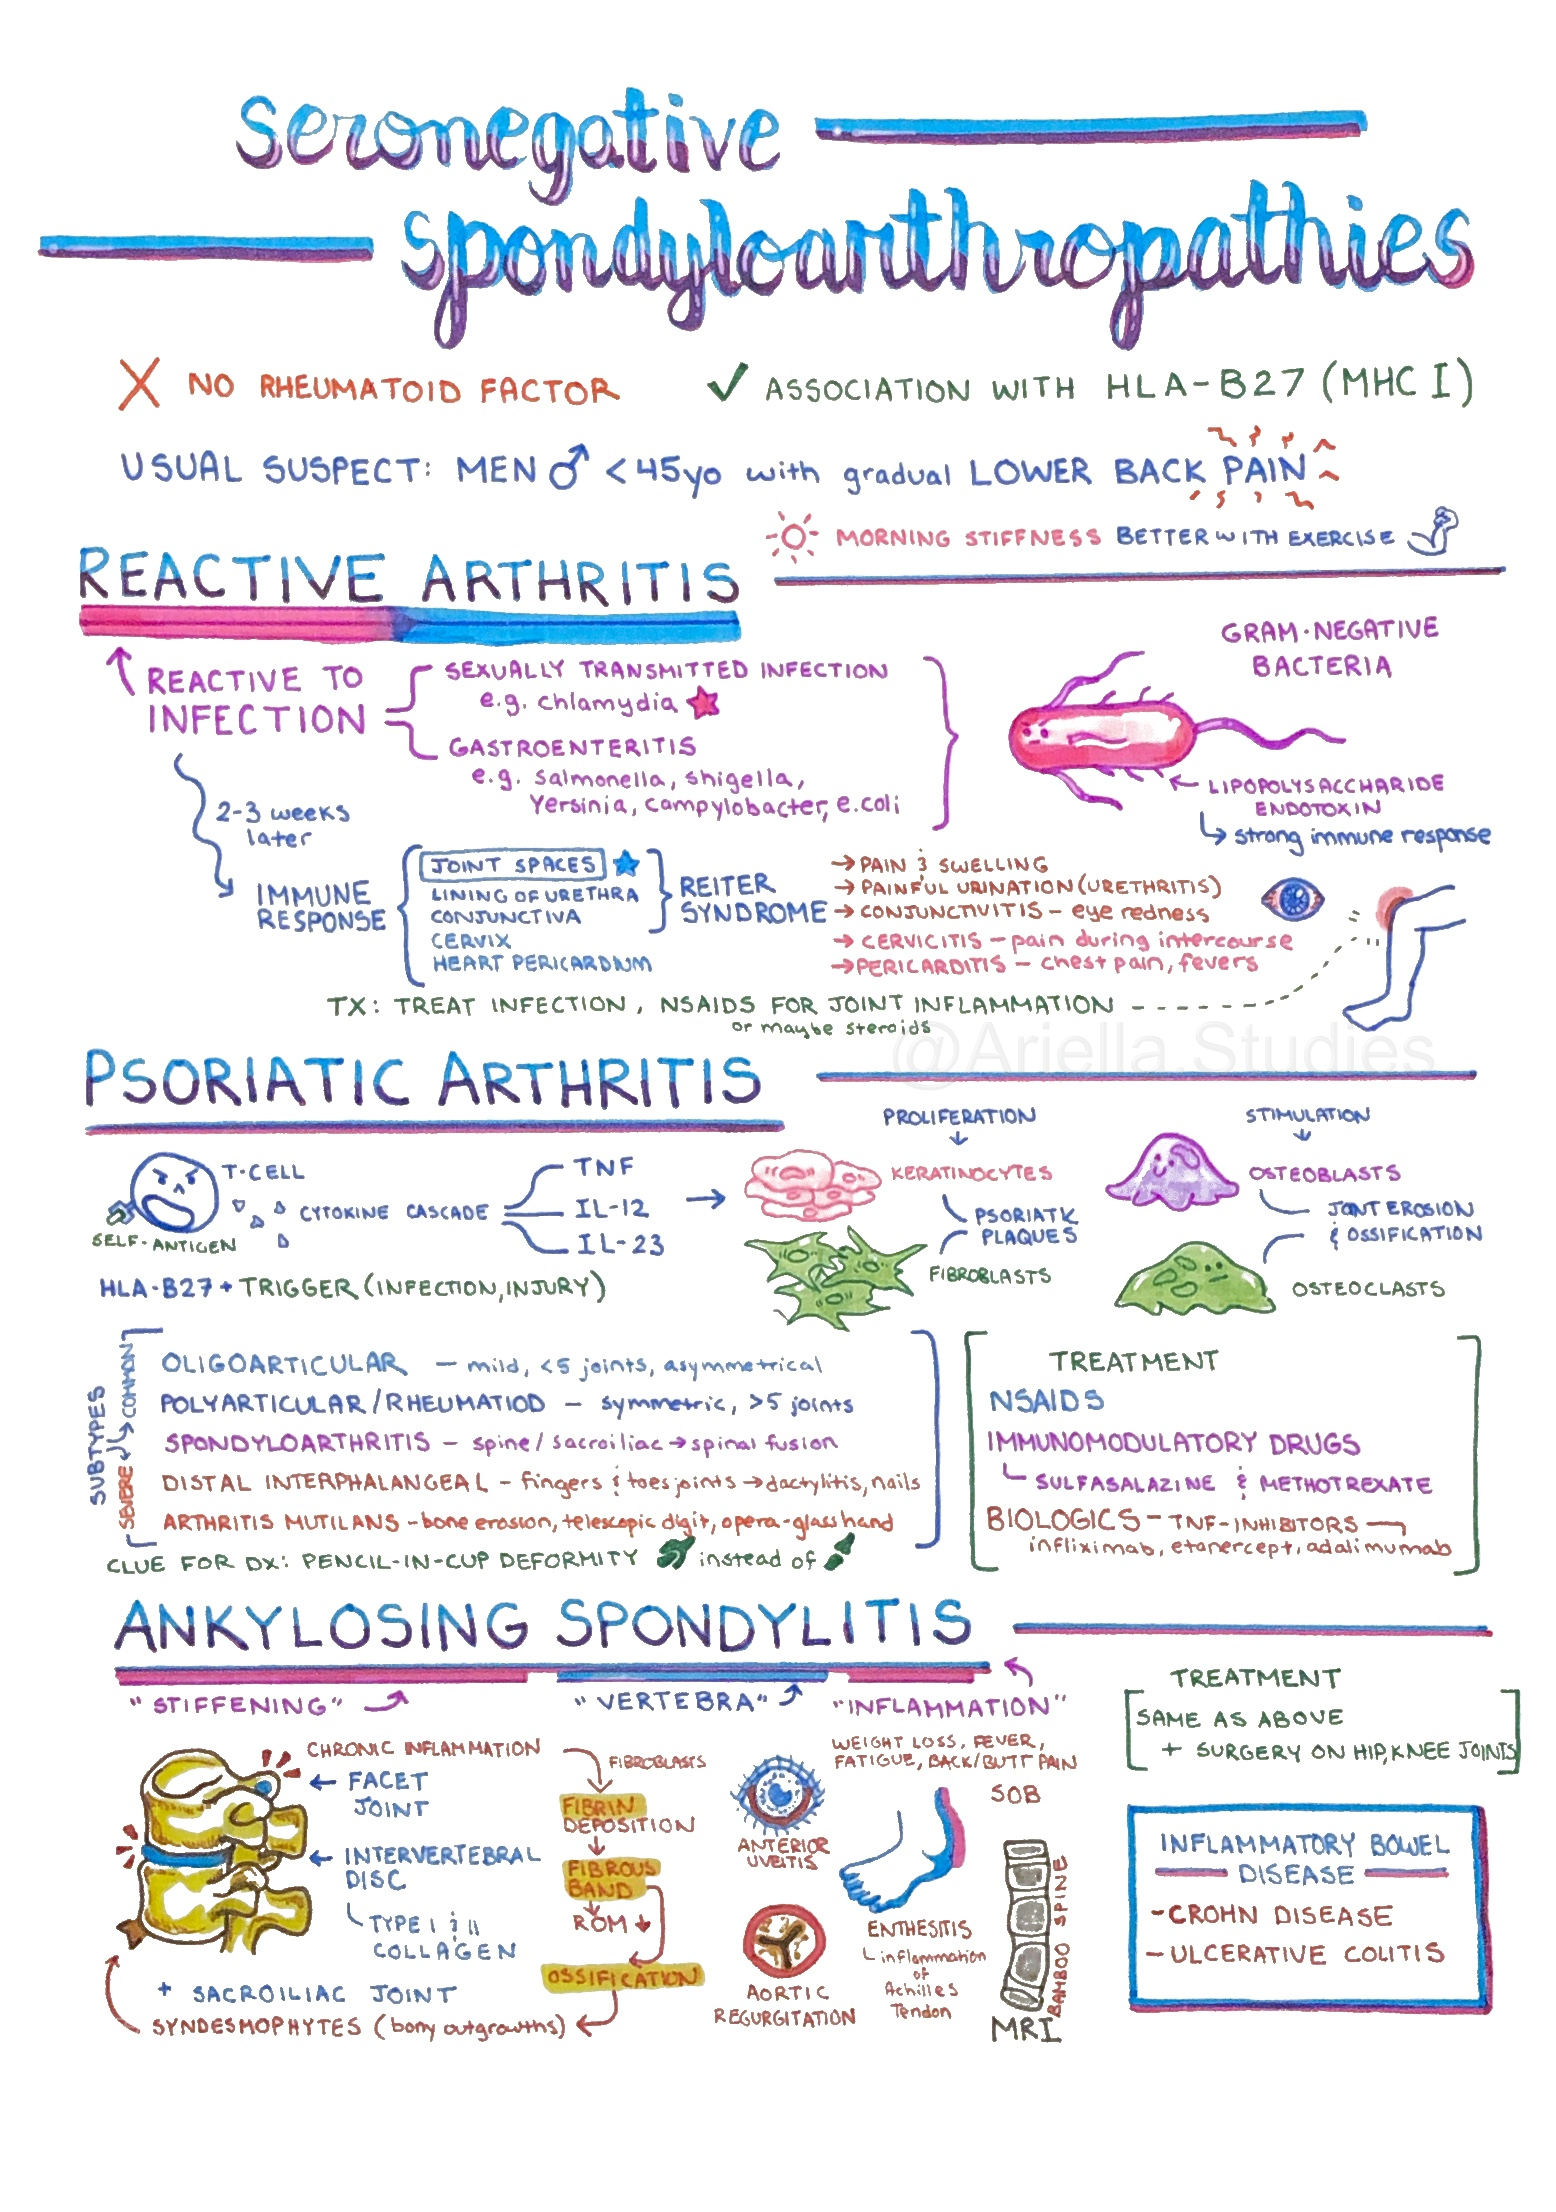 seronegative
spondyloarthropathies
X NO RHEUMATOID FACTOR
✓ ASSOCIATION WITH HLA-B27 (MHC I)
USUAL SUSPECT: MEN ♂ <45yo with gradual LOWER BACK PAIN
MORNING STIFFNESS BETTER WITH EXERCISE
REACTIVE ARTHRITIS
REACTIVE TO
INFECTION
SEXUALLY TRANSMITTED INFECTION
e.g. chlamydia
GASTROENTERITIS
e.g. Salmonella, shigella,
Yersinia, campylobacter, e.coli
GRAM-NEGATIVE
BACTERIA
LIPOPOLYSACCHARIDE
ENDOTOXIN
↳ strong immune response
2-3 weeks
later
IMMUNE
RESPONSE
JOINT SPACES
LINING OF URETHRA
CONJUNCTIVA
CERVIX
HEART PERICARDIUM
REITER
SYNDROME
→ PAIN & SWELLING
→ PAINFUL URINATION (URETHRITIS)
→ CONJUNCTIVITIS - eye redness
→ CERVICITIS - pain during intercourse
→ PERICARDITIS - chest pain, fevers
TX: TREAT INFECTION, NSAIDS FOR JOINT INFLAMMATION
or maybe steroids
@Ariella.Studies
PSORIATIC ARTHRITIS
T-CELL
SELF-ANTIGEN
CYTOKINE CASCADE
TNF
IL-12
IL-23
HLA-B27 + TRIGGER (INFECTION, INJURY)
PROLIFERATION
KERATINOCYTES
PSORIATIC
PLAQUES
FIBROBLASTS
STIMULATION
OSTEOBLASTS
JOINT EROSION
& OSSIFICATION
OSTEOCLASTS
SUBTYPES
SEVERE
COMMON
OLIGOARTICULAR - mild, <5 joints, asymmetrical
POLYARTICULAR/RHEUMATIOD - symmetric, >5 joints
SPONDYLOARTHRITIS - spine/sacroiliac → spinal fusion
DISTAL INTERPHALANGEAL - fingers & toes joints → dactylitis, nails
ARTHRITIS MUTILANS - bone erosion, telescopic digit, opera-glass hand
CLUE FOR DX: PENCIL-IN-CUP DEFORMITY instead of
TREATMENT
NSAIDS
IMMUNOMODULATORY DRUGS
SULFASALAZINE & METHOTREXATE
BIOLOGICS - TNF-INHIBITORS
infliximab, etanercept, adalimumab
ANKYLOSING SPONDYLITIS
"STIFFENING"
"VERTEBRA"
"INFLAMMATION"
CHRONIC INFLAMMATION
← FACET
JOINT
← INTERVERTEBRAL
DISC
TYPE I & II
COLLAGEN
+ SACROILIAC JOINT
SYNDESMOPHYTES (bony outgrowths)
FIBROBLASTS
FIBRIN
DEPOSITION
FIBROUS
BAND
ROM ↓
OSSIFICATION
WEIGHT LOSS, FEVER,
FATIGUE, BACK/BUTT PAIN
SOB
ANTERIOR
UVEITIS
AORTIC
REGURGITATION
ENTHESITIS
inflammation
of
Achilles
Tendon
BAMBOO SPINE
MRI
TREATMENT
SAME AS ABOVE
+ SURGERY ON HIP, KNEE JOINTS
INFLAMMATORY BOWEL
DISEASE
- CROHN DISEASE
- ULCERATIVE COLITIS